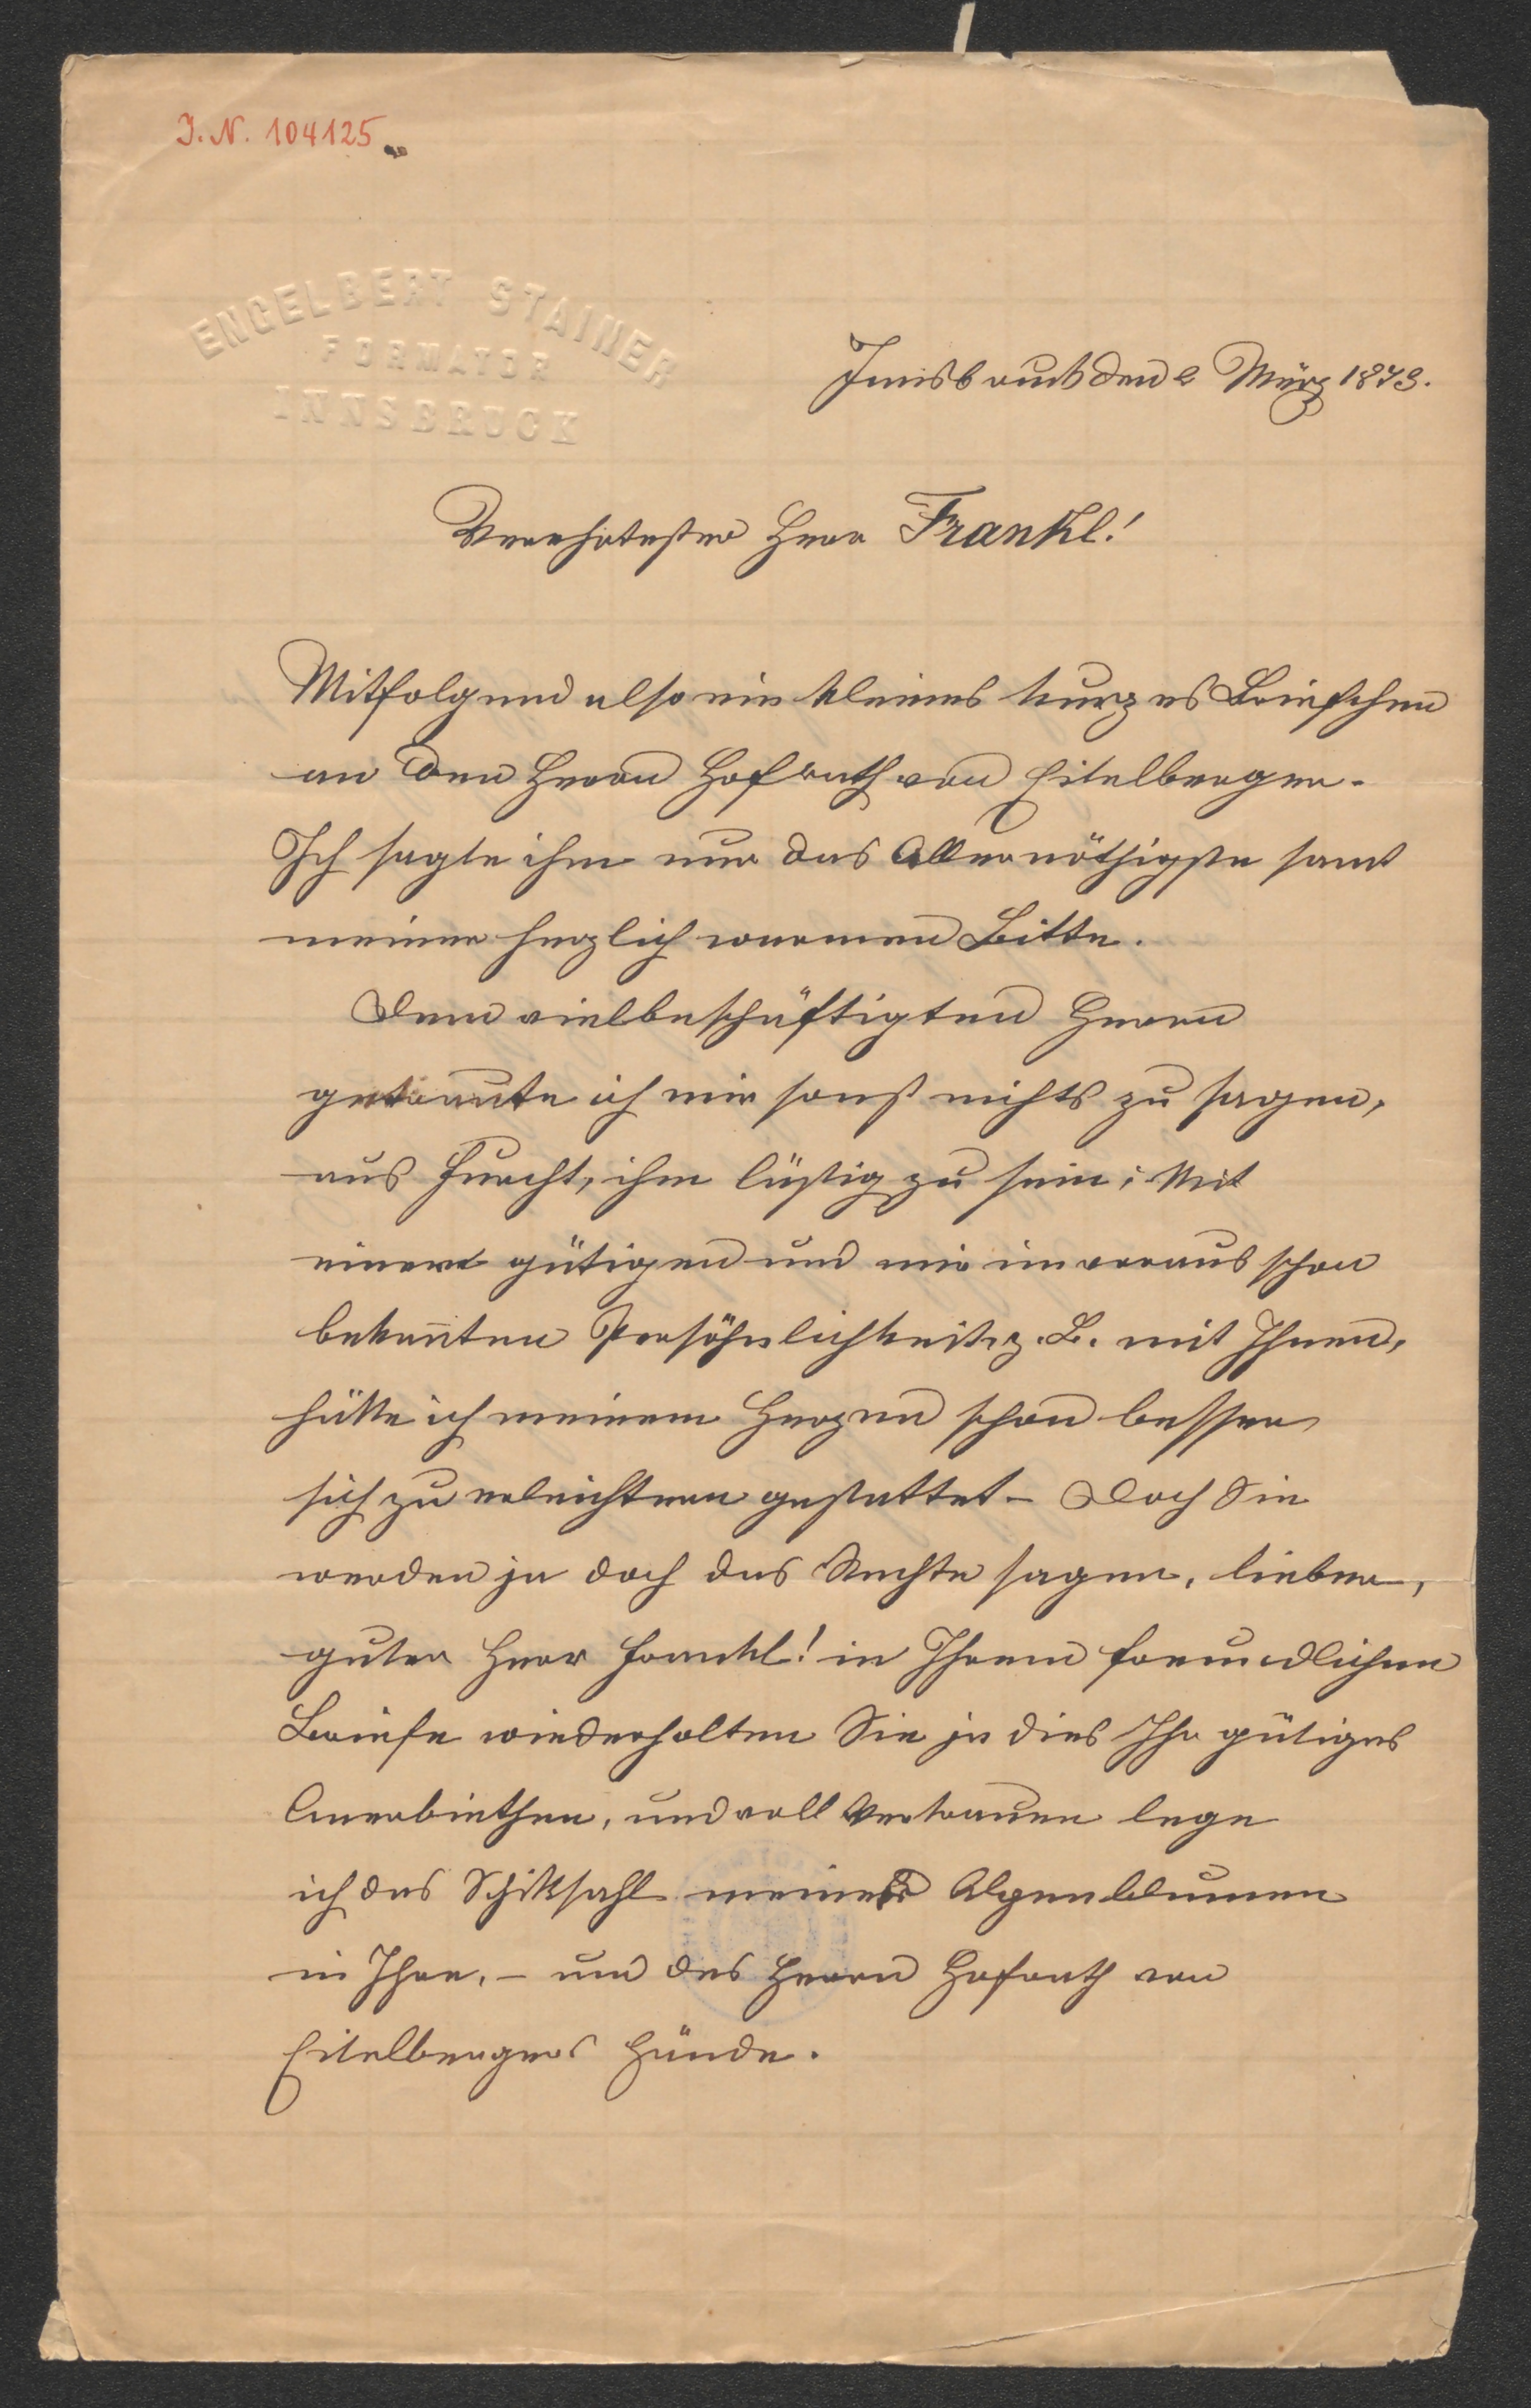 J. N. 104125
ENGELBERT STAINER
FORMATOR
INNSBRUCK
Innsbruck den 2 März 1879.
Verehrtester Herr Frankl!
Mitfolgend also ein kleines kurzes Briefchen
an den Herrn Hofrath von Eitelberger.
Ich sagte ihm nur das Allernöthigste samt
meiner herzlich warmen Bitte.
Dem vielbeschäftigten Herrn
getraute ich mir sonst nichts zu sagen,
aus Furcht, ihm lästig zu sein; Mit
einer gütigen und mir im voraus schon
bekannten Persöhnlichkeit z. B. mit Ihnen,
hätte ich meinem Herzen schon besser
sich zu erleichtern gestattet – Doch Sie
werden ja doch das Rechte sagen, lieber,
guter Herr Frankl! in Ihrem freundlichen
Briefe wiederholten Sie ja dies Ihr gütiges
Anerbiethen, und voll Vertrauen lege
ich das Schiksahl meiner Alpenblumen
in Ihre, – und des Herrn Hofrath von
Eitelbergers Hände.